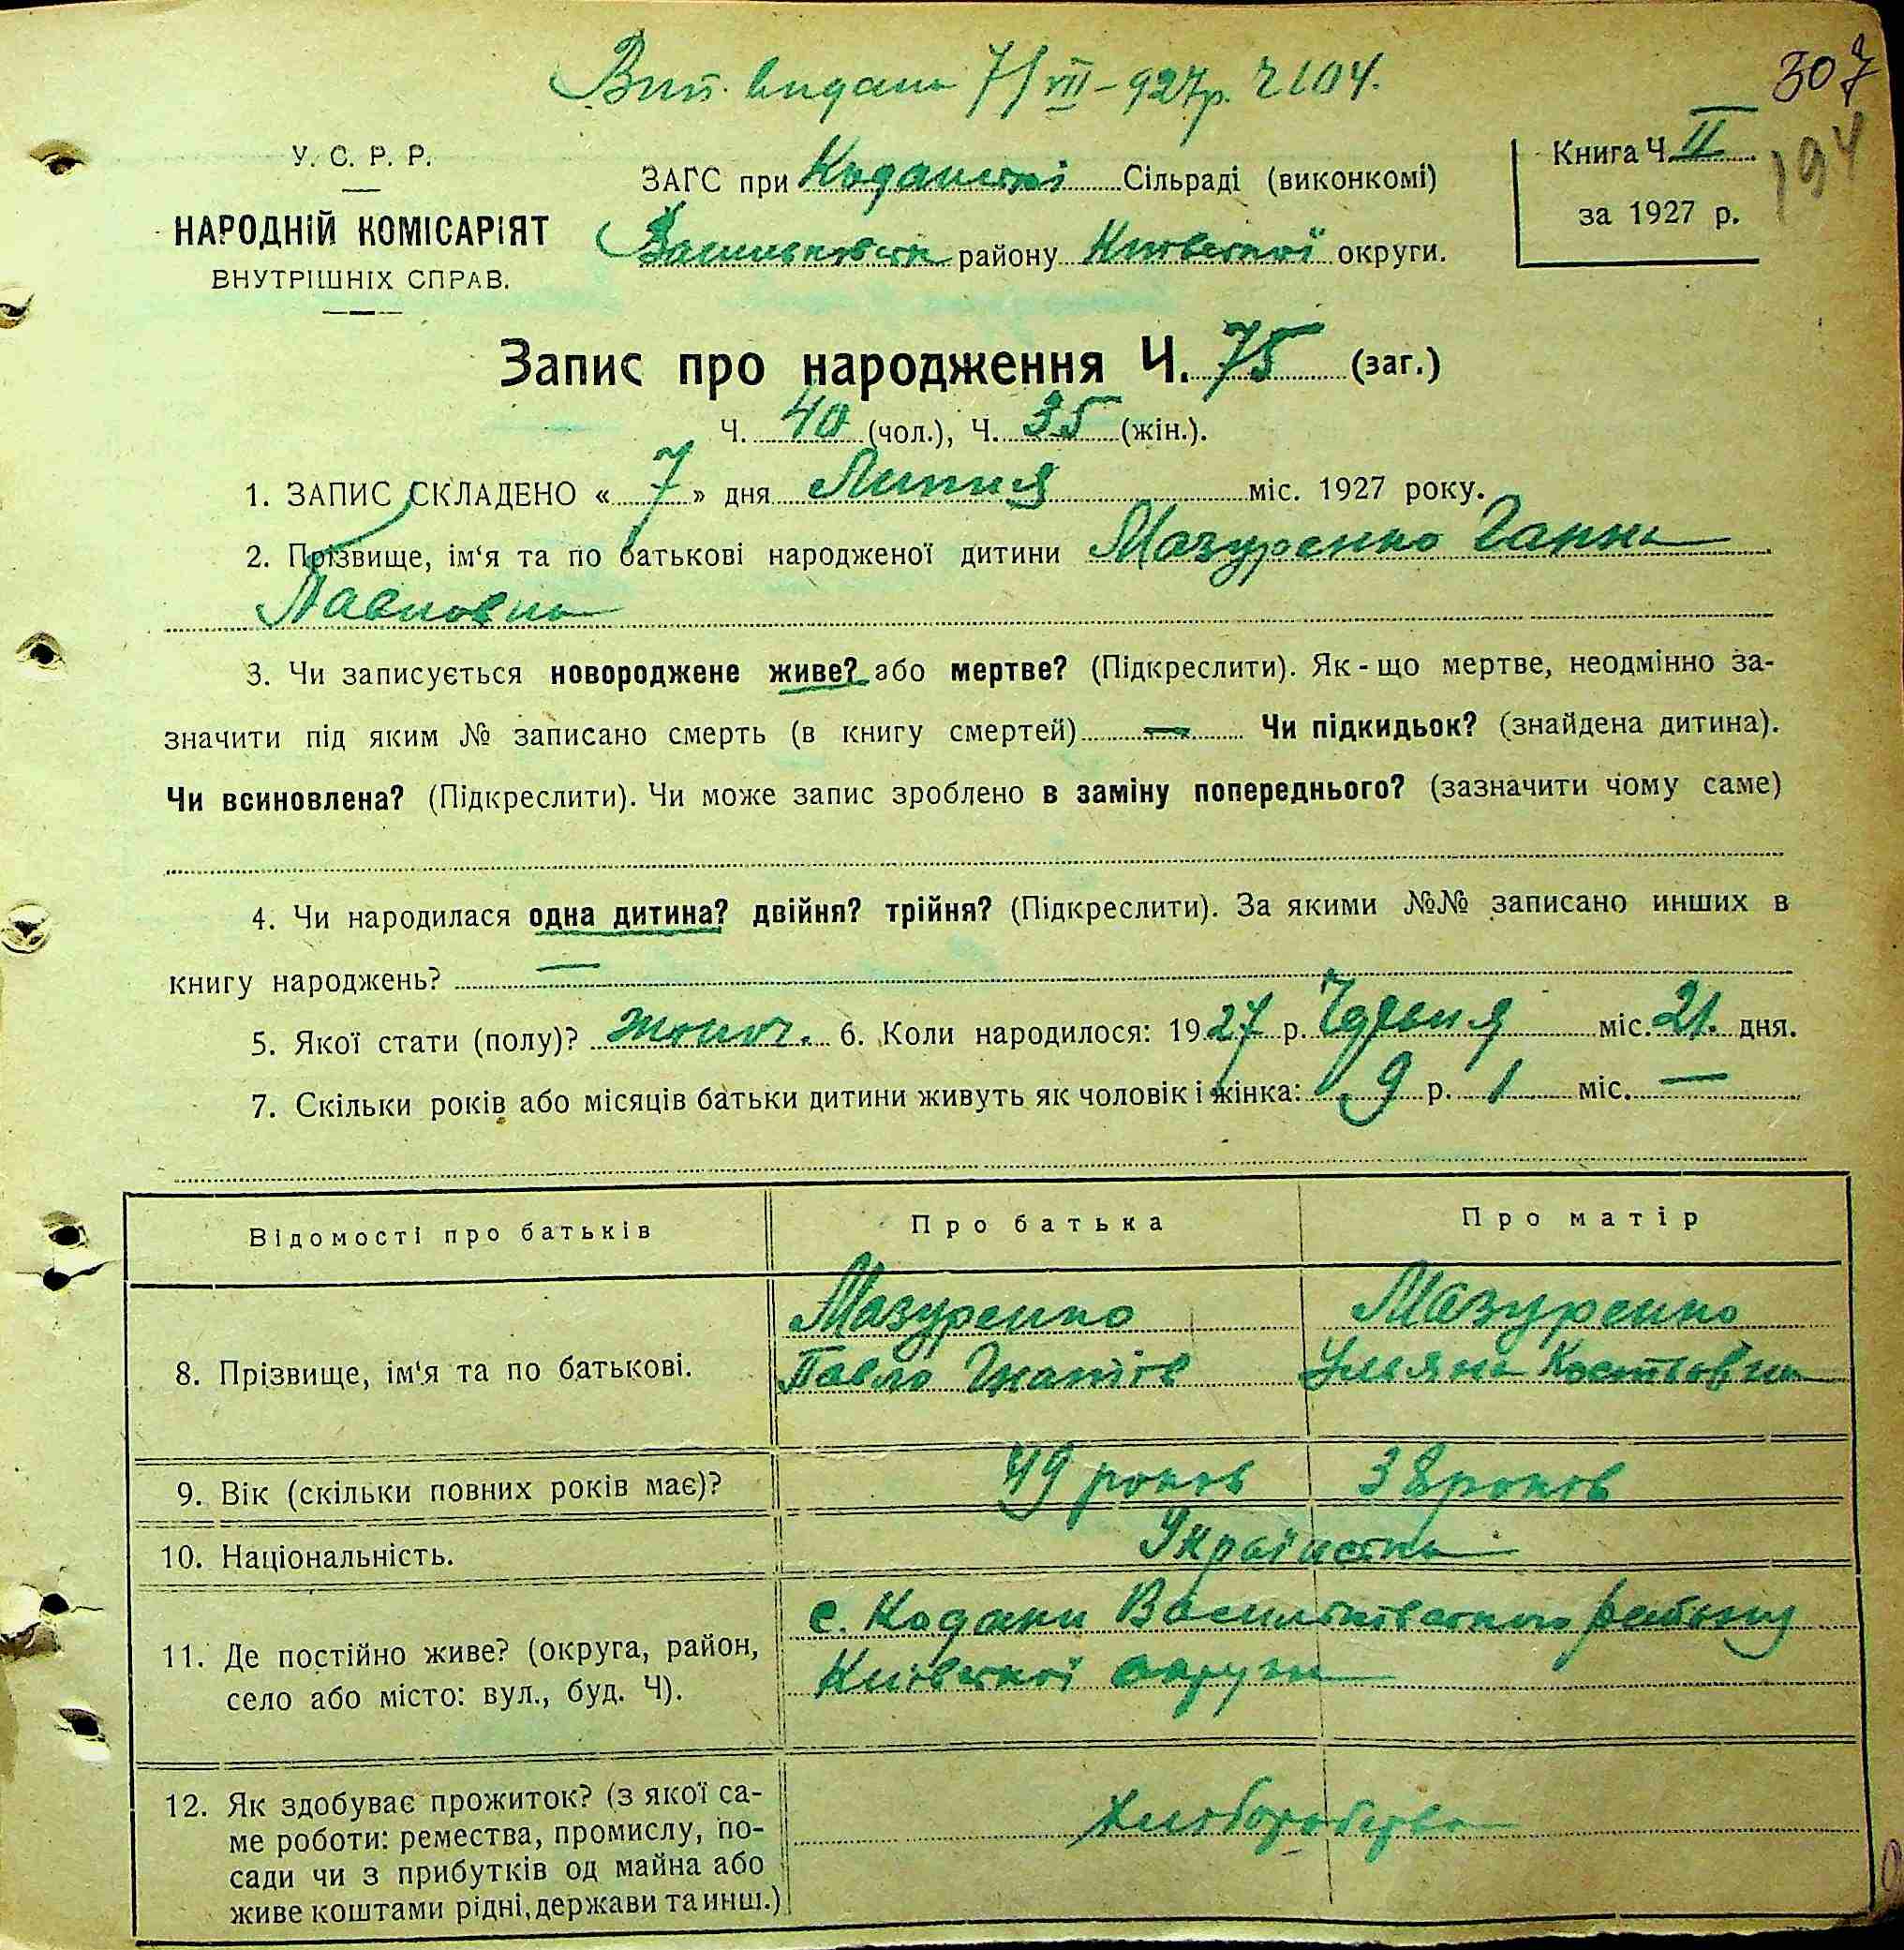 Вип. видана 7/VII-927р. Ч 104.
307
194
У. С. Р. Р.
НАРОДНІЙ КОМІСАРІЯТ
ВНУТРІШНІХ СПРАВ.
ЗАГС при Коданській Сільраді (виконкомі)
Васильківськ району Київської округи.
Книга Ч. II
за 1927 р.
Запис про народження Ч. 75 (заг.)
Ч. 40 (чол.), Ч. 35 (жін.).
1. ЗАПИС СКЛАДЕНО « 7 » дня Липня міс. 1927 року.
2. Прізвище, ім‘я та по батькові народженої дитини Мазуренко Ганна
Павловна
3. Чи записується новороджене живе? або мертве? (Підкреслити). Як-що мертве, неодмінно за-
значити під яким № записано смерть (в книгу смертей) — Чи підкидьок? (знайдена дитина).
Чи всиновлена? (Підкреслити). Чи може запис зроблено в заміну попереднього? (зазначити чому саме)
4. Чи народилася одна дитина? двійня? трійня? (Підкреслити). За якими №№ записано инших в
книгу народжень? —
5. Якої стати (полу)? жіноч. 6. Коли народилося: 1927 р. Червня міс. 21. дня.
7. Скільки років або місяців батьки дитини живуть як чоловік і жінка: 9 р. 1 міс. —
Відомості про батьків Про батька Про матір
8. Прізвище, ім‘я та по батькові.
Мазуренко Мазуренко
Павло Гнатів Уляна Костьовна
9. Вік (скільки повних років має)? 49 років 38 років
10. Національність. Українська
11. Де постійно живе? (округа, район,
село або місто: вул., буд. Ч).
с. Кодаки Васильківського району
Київської округи
12. Як здобуває прожиток? (з якої са-
ме роботи: ремества, промислу, по-
сади чи з прибутків од майна або
живе коштами рідні, держави та инш.)
Хліборобство